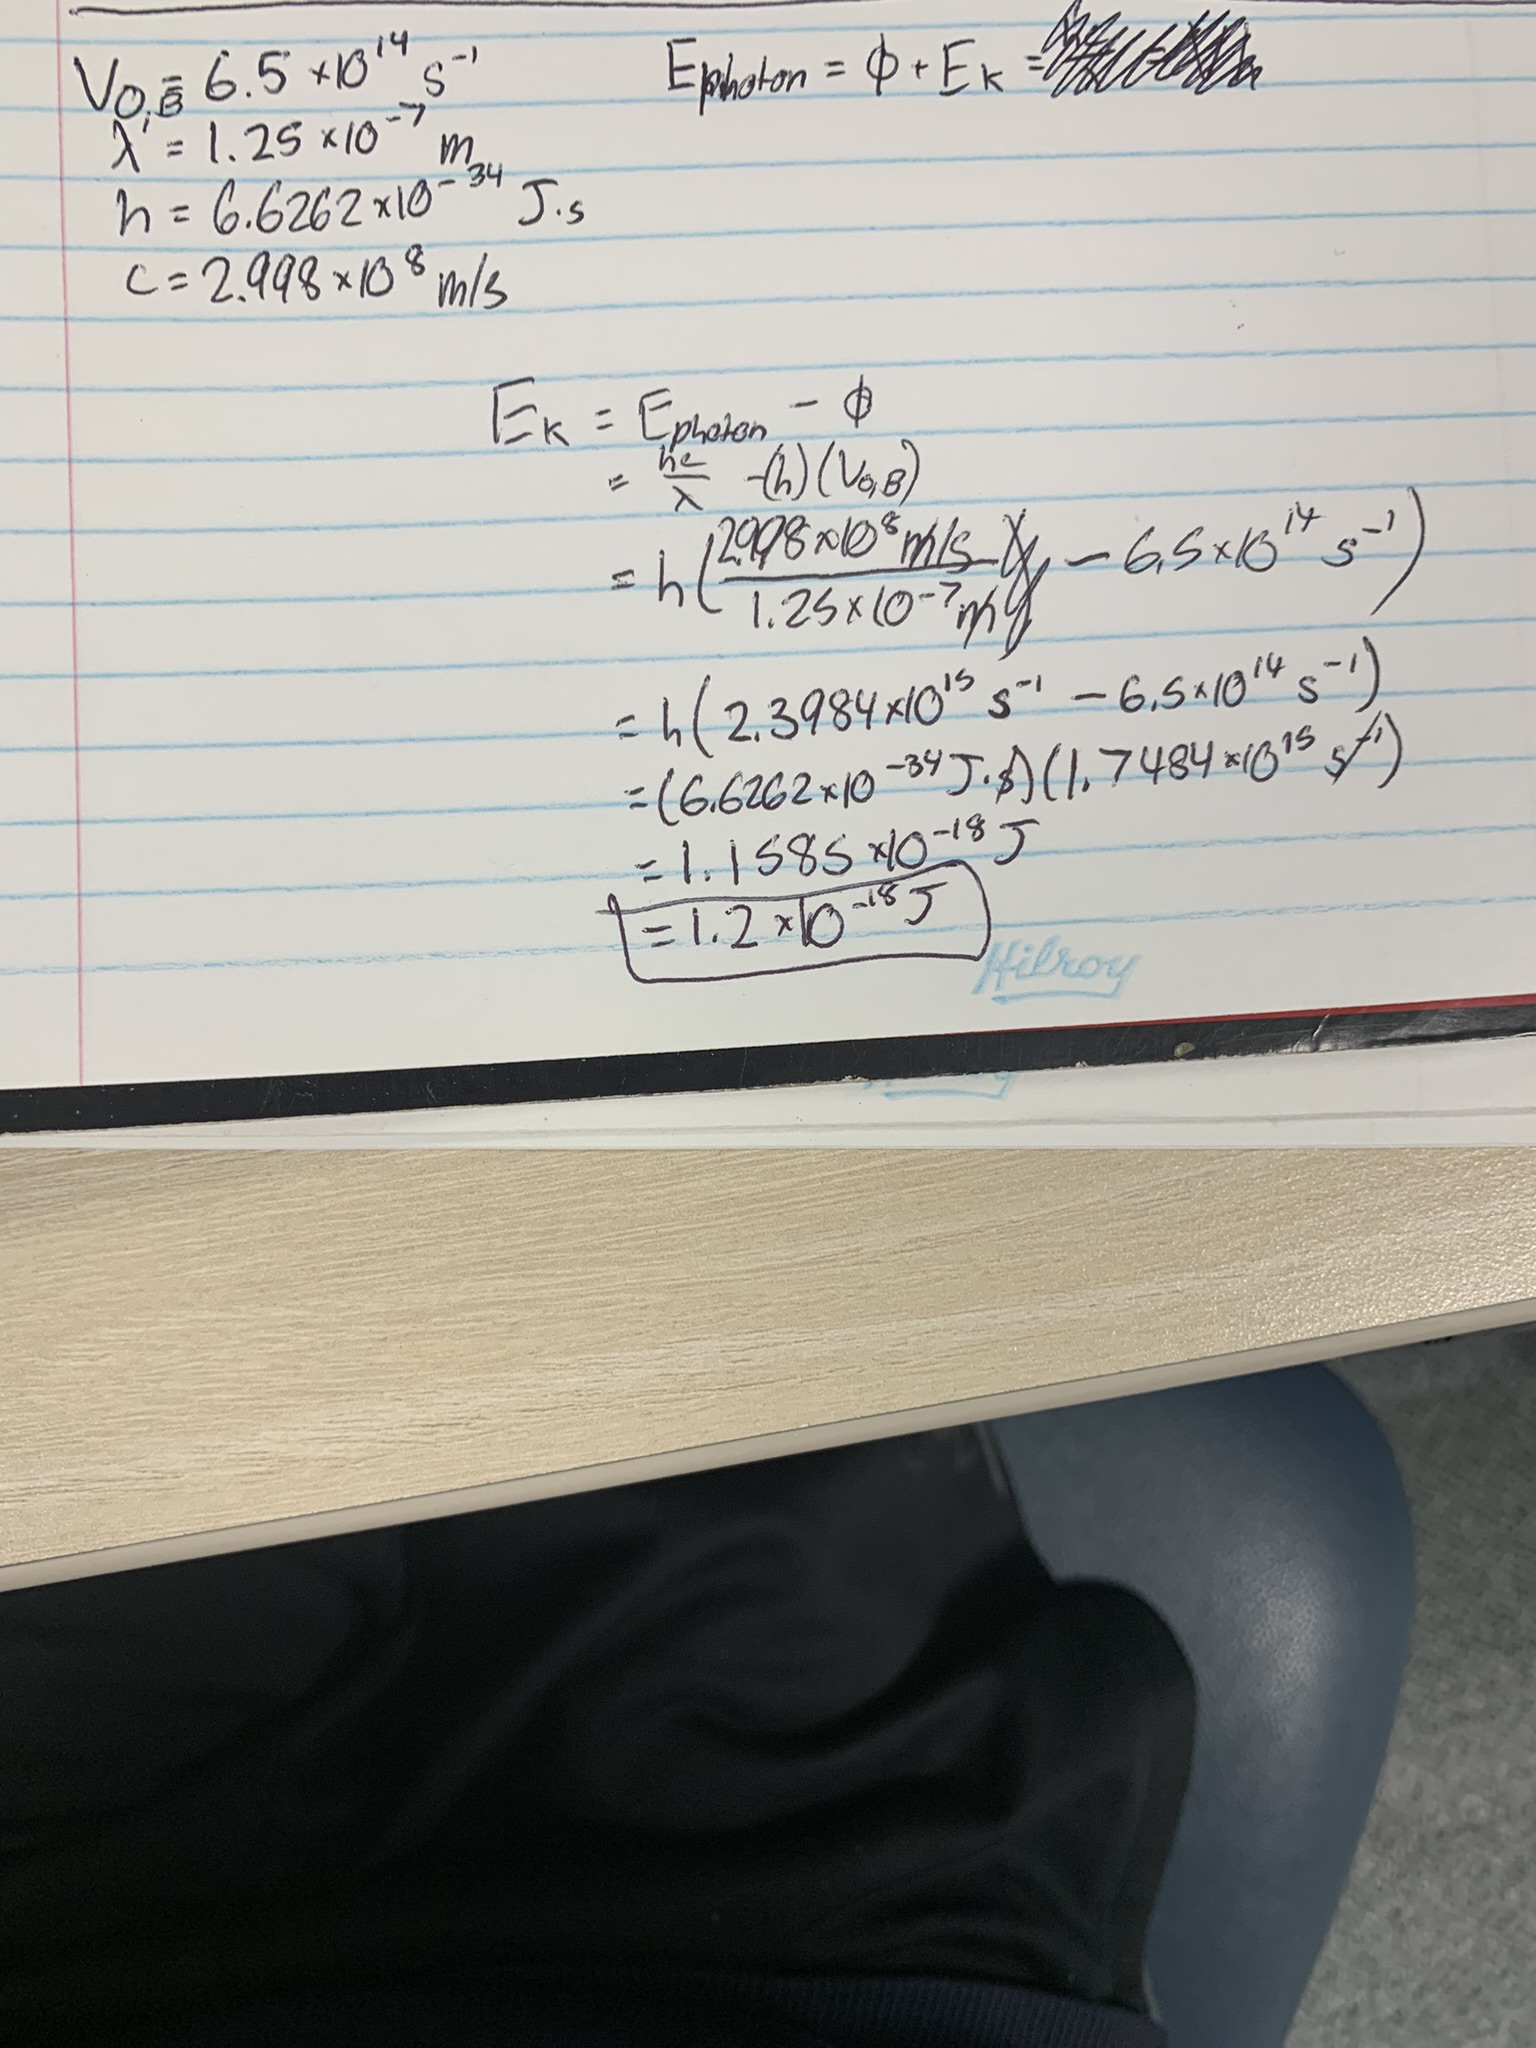 V₀,B = 6.5 ×10¹⁴ s⁻¹
λ = 1.25 ×10⁻⁷ m
h = 6.6262 ×10⁻³⁴ J·s
c = 2.998 ×10⁸ m/s
Ephoton = ϕ + Eₖ =
Eₖ = Ephoton − ϕ
= hc/λ −(h)(V₀,B)
= h(2.998×10⁸ m/s / 1.25×10⁻⁷ m − 6.5×10¹⁴ s⁻¹)
= h(2.3984×10¹⁵ s⁻¹ − 6.5×10¹⁴ s⁻¹)
= (6.6262×10⁻³⁴ J·s)(1.7484×10¹⁵ s⁻¹)
= 1.1585 ×10⁻¹⁸ J
= 1.2 ×10⁻¹⁸ J
Hilroy